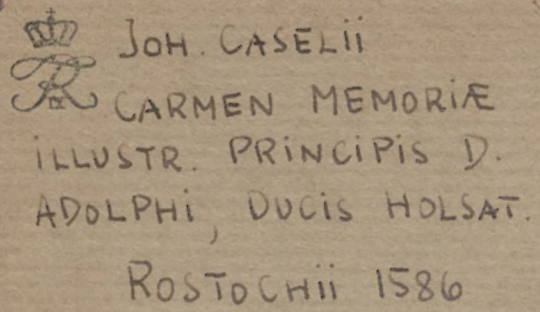 JOH. CASELII
CARMEN MEMORIÆ
ILLUSTR. PRINCIPIS D.
ADOLPHI, DUCIS HOLSAT.
ROSTOCHII 1586